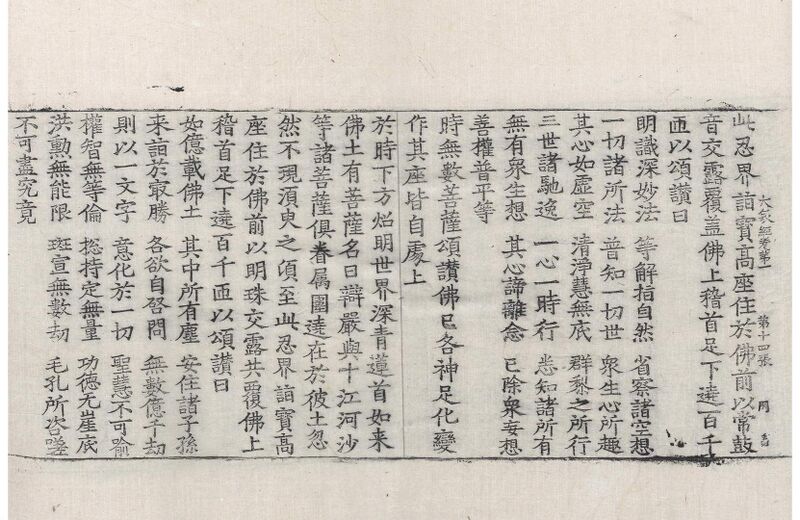 此忍界詣寶高座住於佛前以常鼓
大哀經卷第一 第十四張 罔
音交露覆盖佛上稽首足下遶百千
匝以頌讚曰
明識深妙法 等解指自然 省察諸空想
一切諸所法 普知一切世 衆生心所趣
其心如虛空 清淨慧無底 群黎之所行
三世諸馳逸 一心一時行 悉知諸所有
無有衆生想 其心諦離念 已除衆妄想
善權普平等
時無數菩薩頌讚佛已各神足化變
作其座皆自處上
於時下方炤明世界深青蓮首如来
佛土有菩薩名曰辯嚴與十江河沙
等諸菩薩俱眷属圍遶在於彼土忽
然不現湏臾之頃至此忍界詣寶高
座住於佛前以明珠交露共覆佛上
稽首足下遶百千匝以頌讚曰
如億載佛土 其中所有塵 安住諸子孫
来詣於㝡勝 各欲自啓問 無數億千劫
則以一文字 意化於一切 聖慧不可喻
權智無等倫 捴持定無量 功德无崖底
洪勳無能限 班宣無數劫 毛孔所咨嗟
不可盡究竟